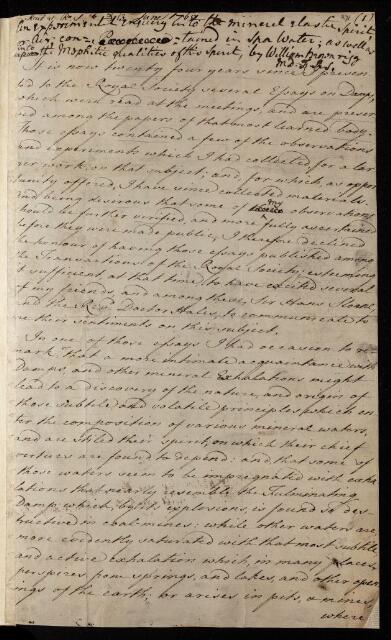 An experimental Enquiry into the mineral elastic Spirit,
or Air, contained in Spa Water; as well as
into the Mephitic qualities of this Spirit, by William Brownrigg
M.D. F.R.S.
It is now twenty four years since I presen
ted to the Royal Society several Essays on Damps,
which were read at the meetings, and are preser
ved among the papers of that most learned body.
Those essays contained a few of the observations
and experiments which I had collected for a lar
ger work, on that subject; and, for which, as oppor
tunity offered, I have since collected materials.
And being desirous that some of my observations
should be further verified, and more fully ascertained
before they were made public, I therefore declined
the honour of having those essays published among
the Transactions of the Royal Society: esteeming
it sufficient, at that time, to have excited several
of my friends, and among these, Sir Hans Sloane,
and the Revd Doctor Hales, to communicate to
me their sentiments on this subject.
In one of those essays I had occasion to re
mark, that a more intimate acquaintance with
Damps, and other mineral Exhalations might
lead to a discovery of the nature, and origin of
those subtile and volatile principles which en
ter the composition of various mineral waters,
and are stiled their spirit, on which their chief
vertues are found to depend: and that some of
those waters seem to be impregnated with exha
lations that nearly resemble the Fulminating
Damp, which, by its explosions, is found so des
tructive in coal mines: while other waters are
more evidently saturated with that most subtile
and active exhalation which, in many places,
perspires from springs, and lakes, and other open
ings of the earth; or arises in pits, & mines,
where